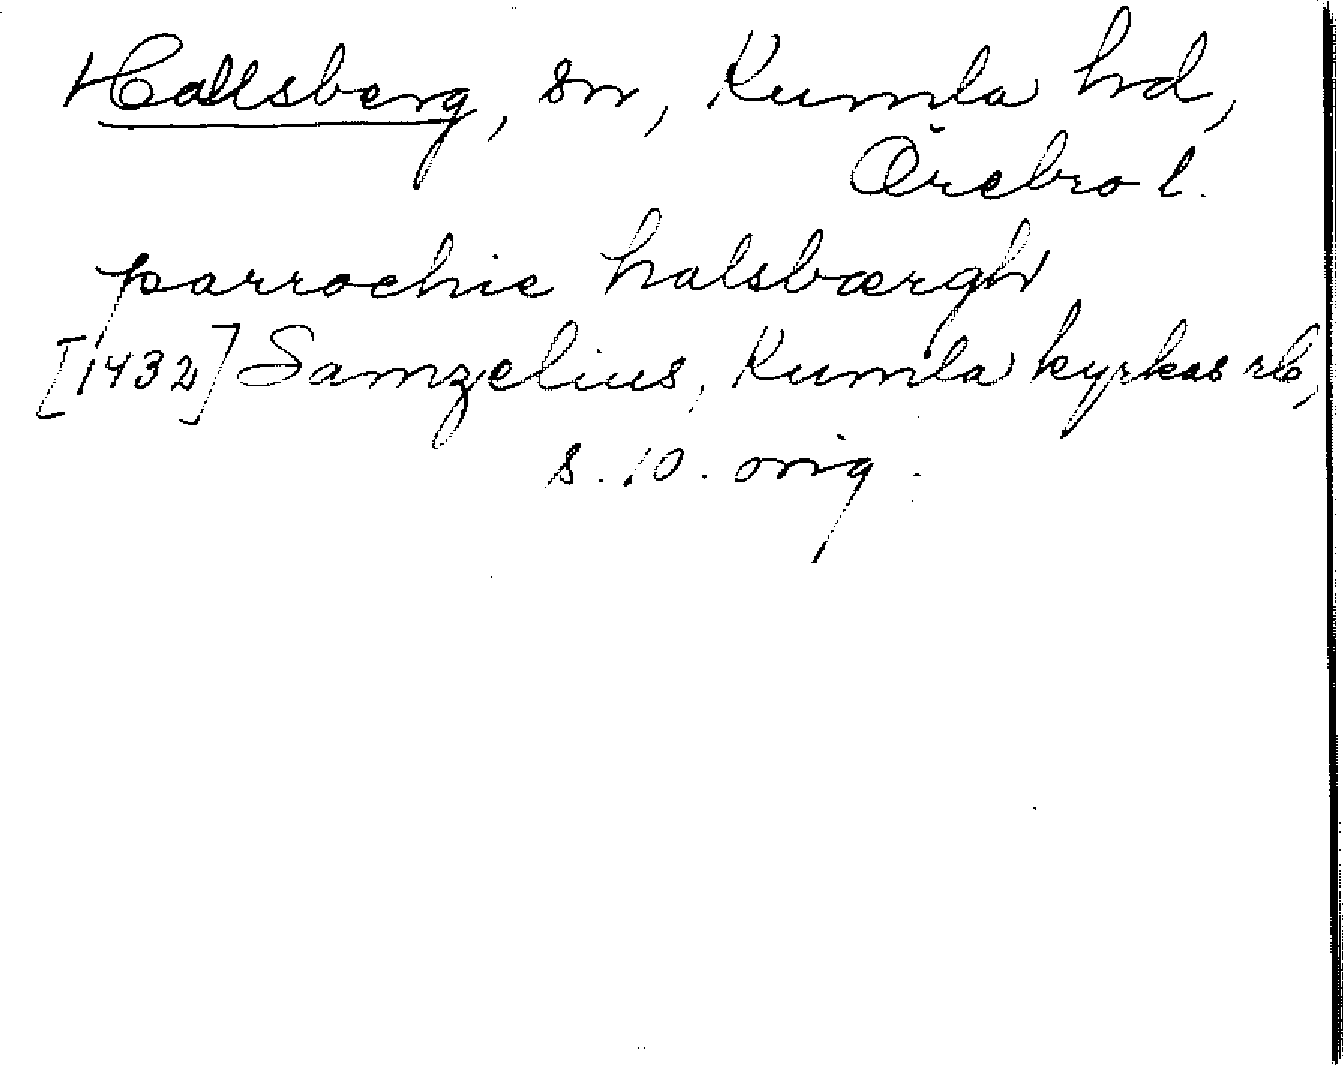 Hallsberg, sn, Kumla hd,
Örebro l.
parrochie halsbærgh
[1432] Samzelius, Kumla kyrkas rb,
s. 10. orig.